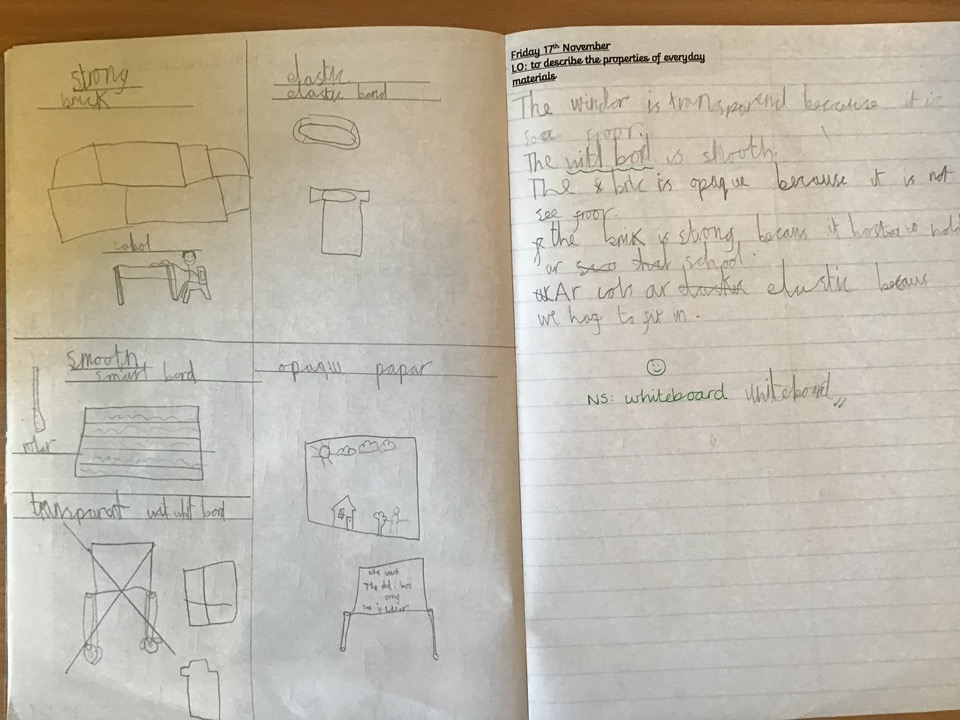 strong
brick
elastic
elastic band
smooth
smart bord
opaqu papar
transparent whit bord
Friday 17th November
LO: to describe the properties of everyday
materials
The windor is transparend because it is
see froor.
The witt bord is smooth.
The bric is opaque because it is not
see froor.
the brik is strong becaus it
ar school.
Ar ar elastic becaus
we haf to fit in.
NS: whiteboard whiteboard